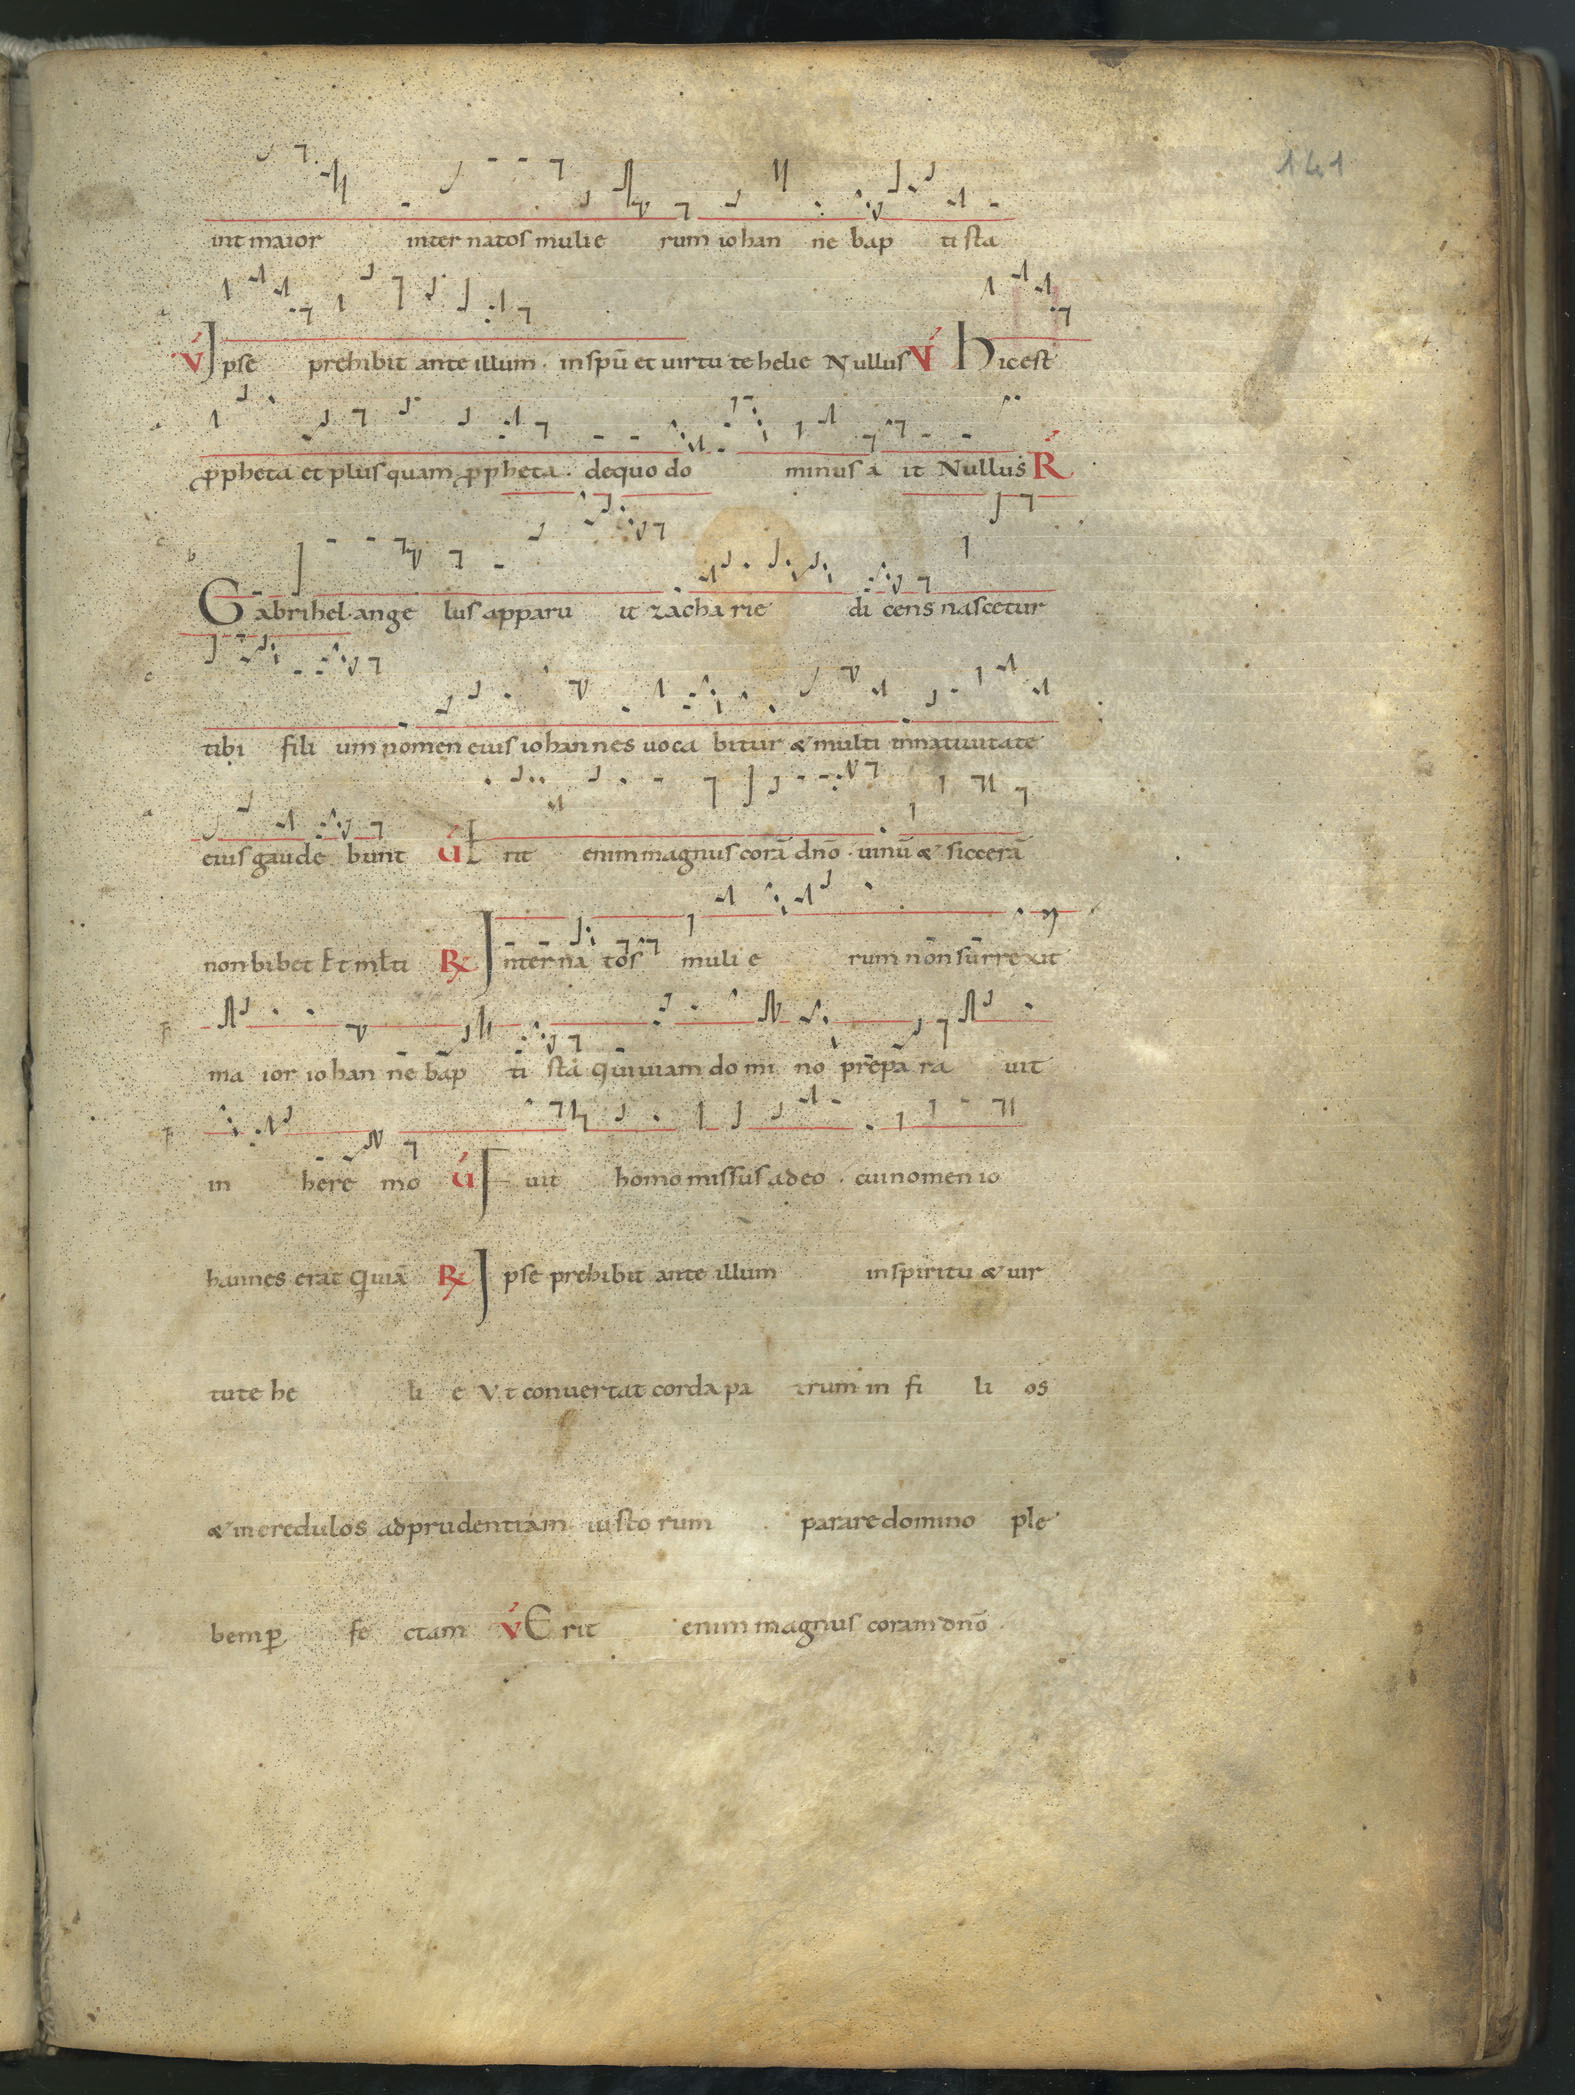 141
int maior inter natos mulie rum iohan ne bap tista
V́ Ipse prehibit ante illum . in spū et uirtu te helie Nullus V́ Hic est
propheta et plus quam propheta . de quo do minus a it Nullus R
Gabrihel ange lus apparu it zacha rie di cens nascetur
tibi fili um nomen eius iohannes uoca bitur & multi in natiuitate
eius gaude bunt Ú Erit enim magnus corā dño . uinū & siccerā
non bibet Et mlti R Inter na tos muli e rum non surrexit
ma ior iohan ne bap ti sta qui uiam do mi no prepa ra uit
in here mo Ú Fuit homo missus a deo . cui nomen io
hannes erat Qui uiā R Ipse prehibit ante illum in spiritu & uir
tute he li e Vt conuertat corda pa trum in fi li os
& incredulos ad prudentiam iusto rum . parare domino ple
bem per fe ctam V́ Erit enim magnus coram dño .